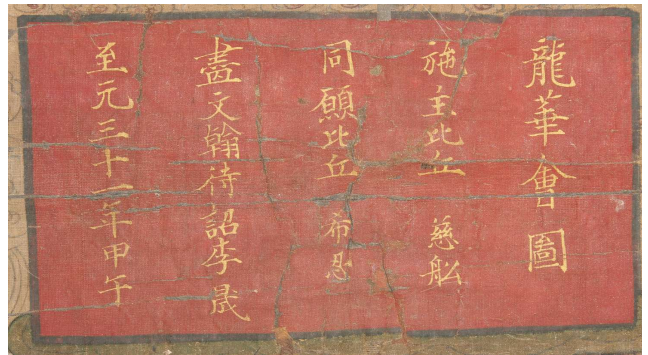 龍華會圖
施主比丘 慈舩
同願比丘 希忍
畵文翰待詔李晟
至元三十一年甲午